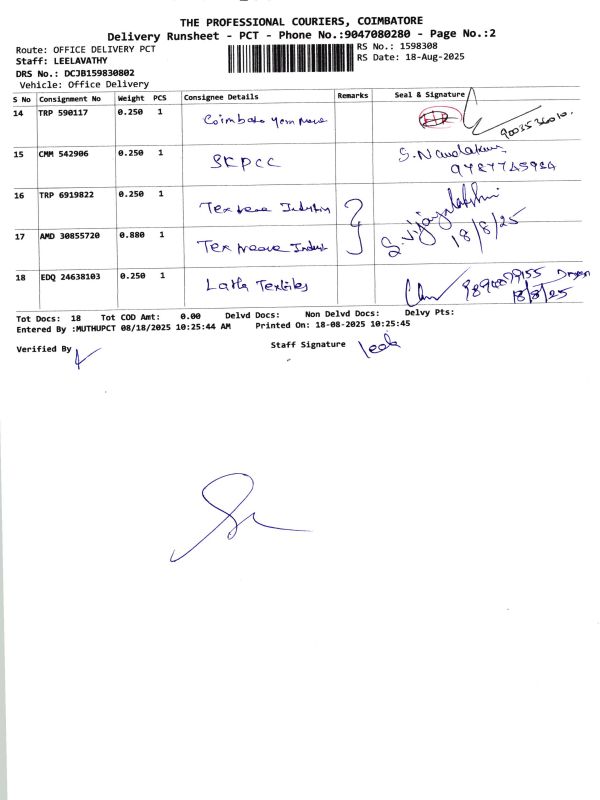 THE PROFESSIONAL COURIERS, COIMBATORE
Delivery Runsheet - PCT - Phone No.:9047080280 - Page No.:2
Route: OFFICE DELIVERY PCT
RS No.: 1598308
Staff: LEELAVATHY
RS Date: 18-Aug-2025
DRS No.: DCJB159830802
Vehicle: Office Delivery
S No Consignment No Weight PCS Consignee Details Remarks Seal & Signature
14 TRP 590117 0.250 1 Coimbato
15 CMM 542906 0.250 1 SKPCC S.Nandakumar
9787745984
16 TRP 6919822 0.250 1 Industries S.Vijayalakshmi
18/8/25
17 AMD 30855720 0.880 1
18 EDQ 24638103 0.250 1 Latha Textiles
18/8/25
Tot Docs: 18 Tot COD Amt: 0.00 Delvd Docs: Non Delvd Docs: Delvy Pts:
Entered By :MUTHUPCT 08/18/2025 10:25:44 AM Printed On: 18-08-2025 10:25:45
Verified By Staff Signature leela